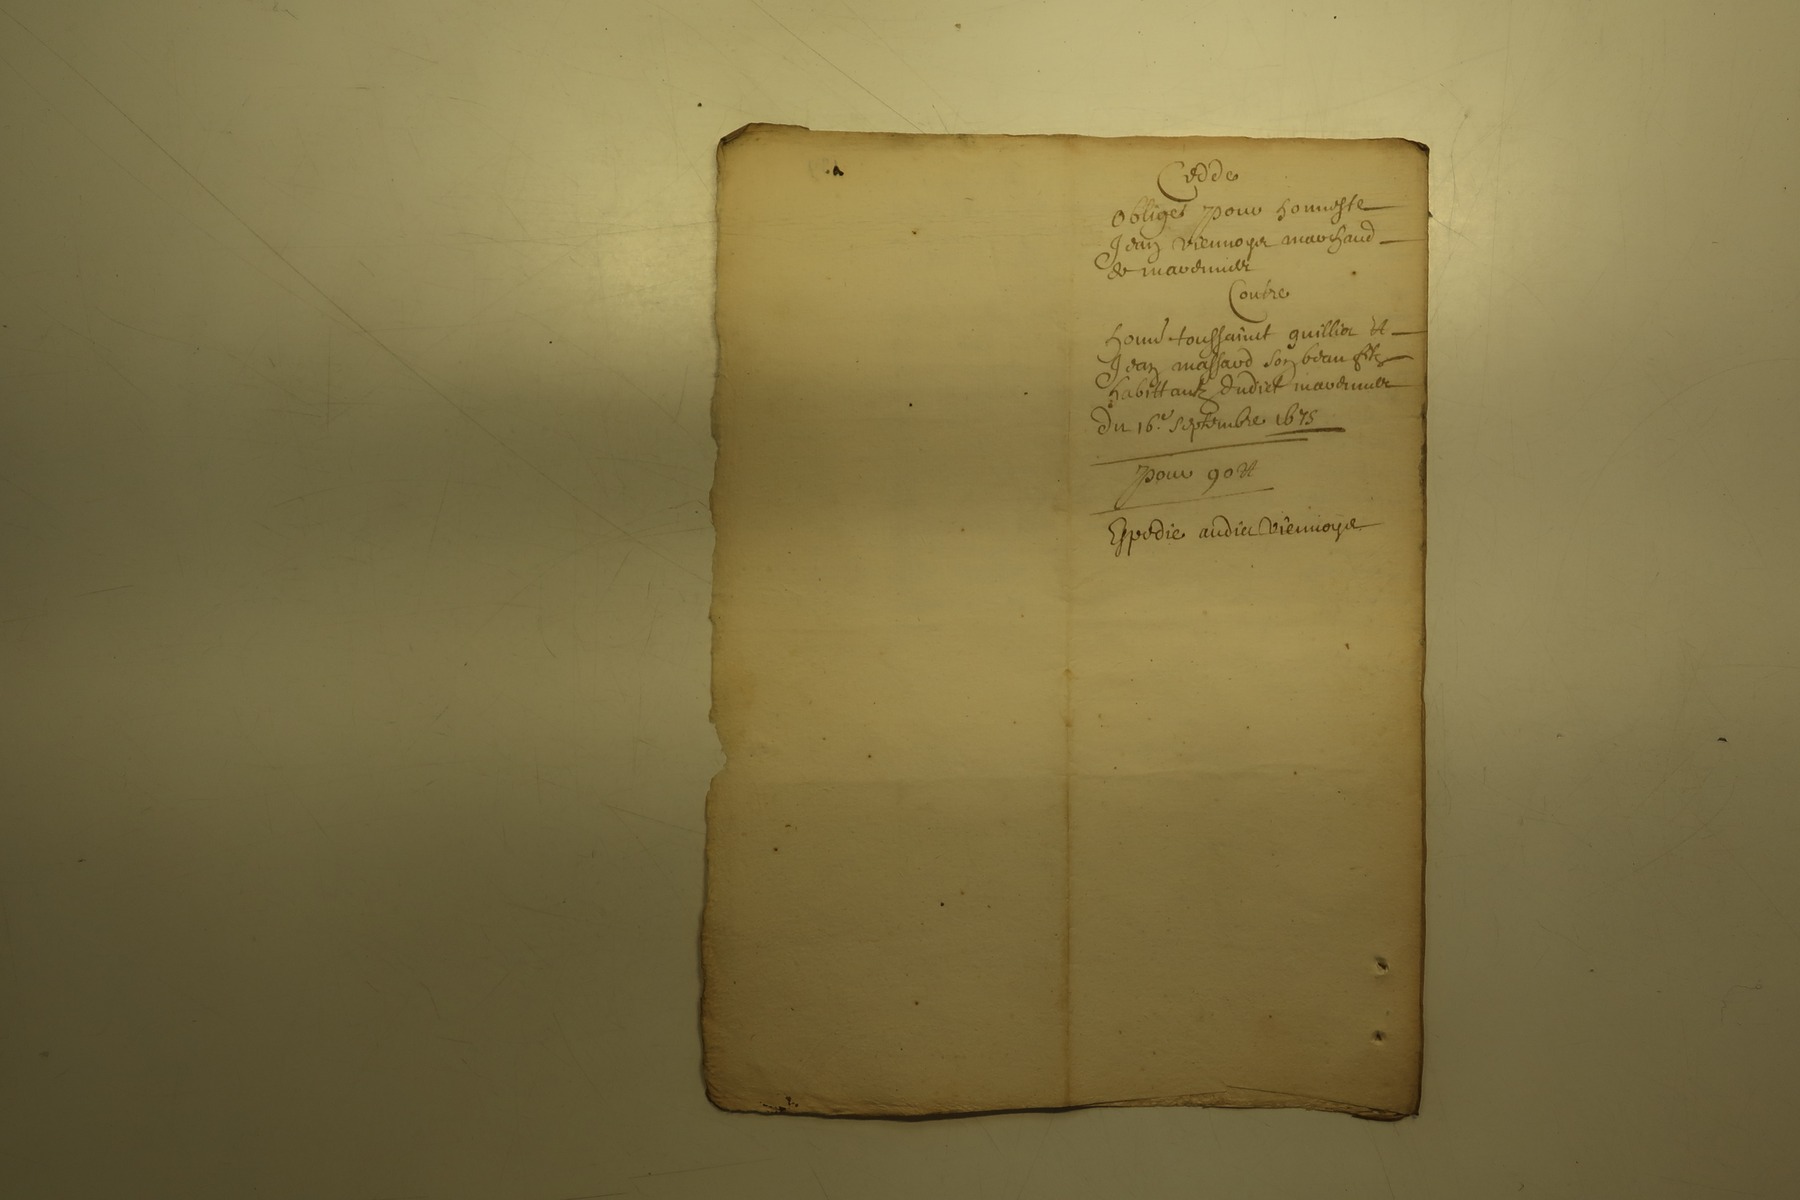 Cedde
Obliges pour honneste
Jean Viennoye marchand
de mavernier
Contre
hon.t toussainct quillier et
Jean massard son beau filz
habittantz dudict mavernier
Du 16.e Septembre 1675
pour 90 tt
Expedie audict Viennoye